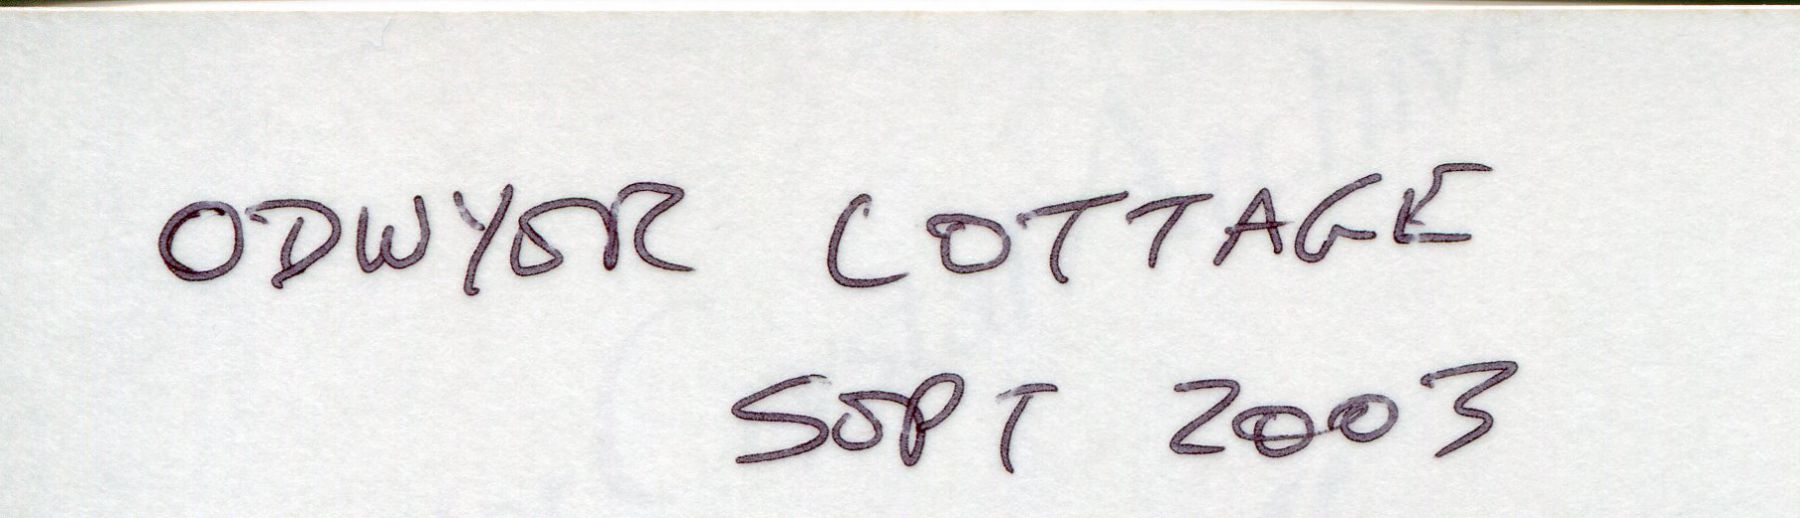 ODWYER COTTAGE
SEPT 2003